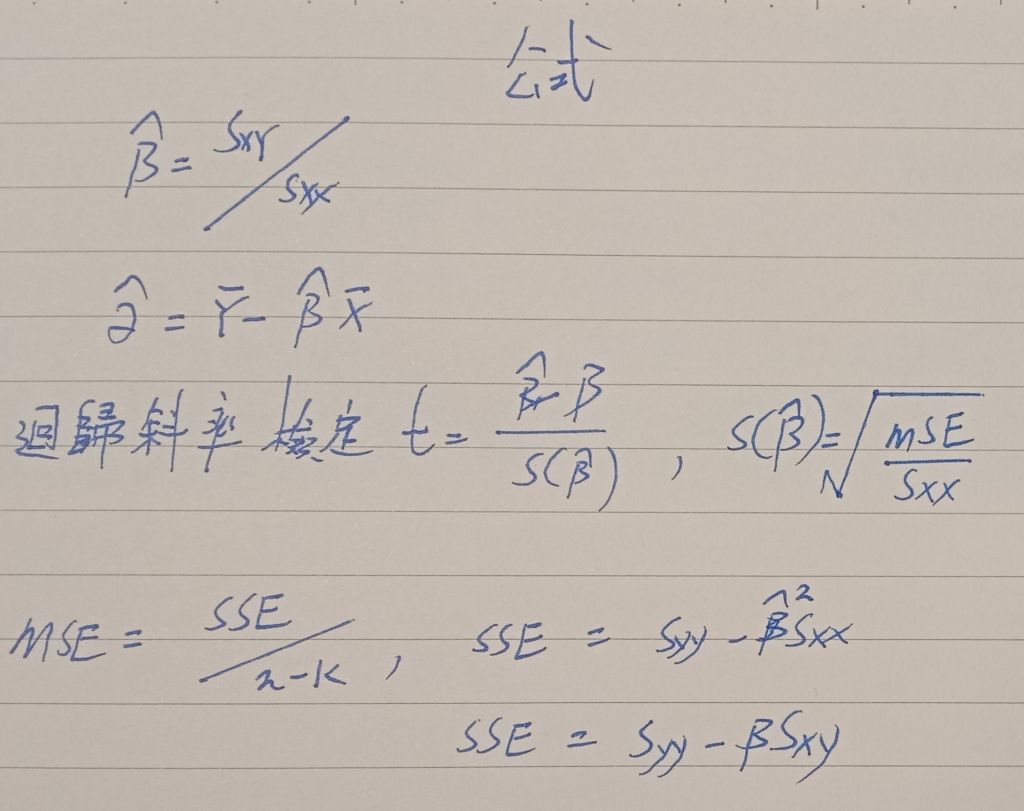 公式
β̂ = Sxy / Sxx
α̂ = Ȳ - β̂ X̄
迴歸斜率檢定 t = (β̂ - β) / S(β̂) , S(β̂) = √(MSE / Sxx)
MSE = SSE / n-k , SSE = Syy - β̂² Sxx
SSE = Syy - βSxy